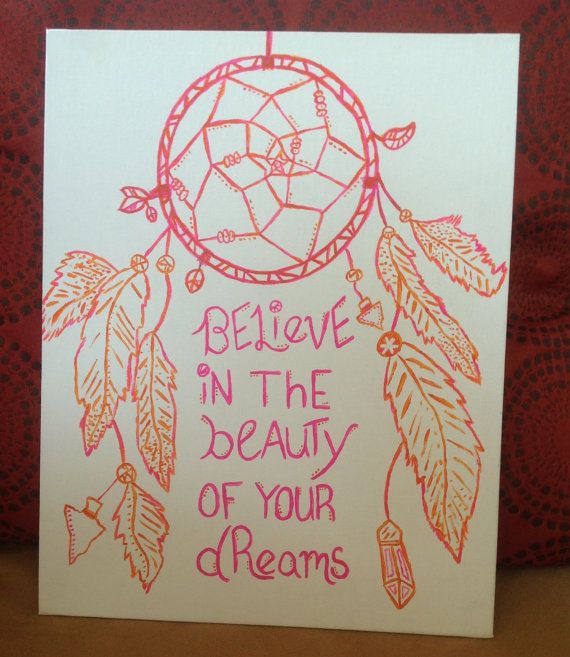 BELieVE
iN THE
beAUTY
OF YOUR
dReams